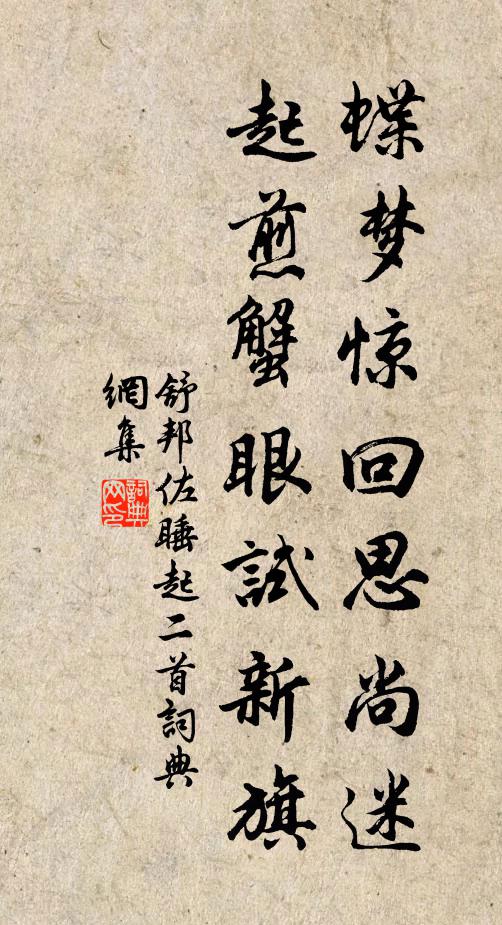 蝶梦惊回思尚迷
起煎蟹眼試新旗
舒邦佐睡起二首詞典
網集
詞典
网印